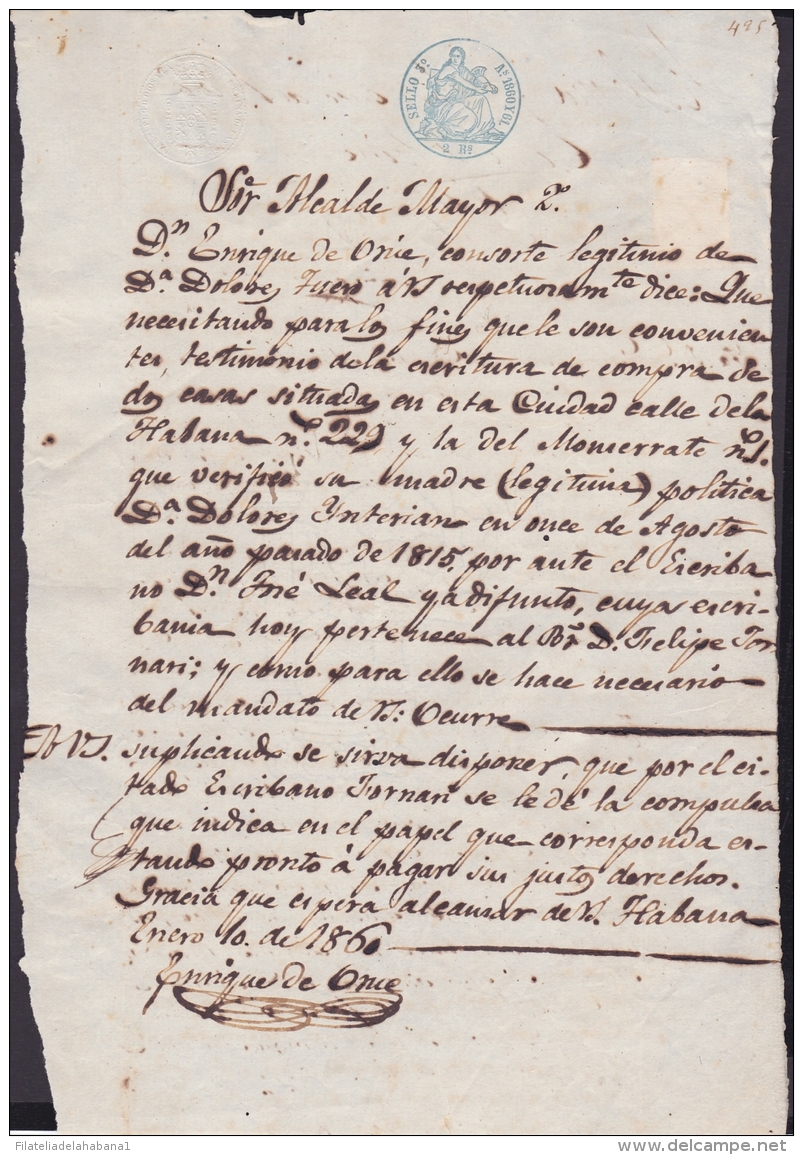 495
SELLO 3º Aˢ 1860 Y 61.
2 Rˢ
Sor. Alcalde Mayor 2º.
Dn. Enrique de Orúe, consorte legitimo de
Da. Dolores Fuero á VS respetuosamte dice: Que
necesitando para los fines que le son convenien
tes, testimonio de la escritura de compra de
dos casas situadas en esta Ciudad calle dela
Habana no. 229 y la del Monserrate no. 1.
que verificó su madre (legitima) politica
Da. Dolores Ynterian en once de Agosto
del año pasado de 1815. por ante el Escriba
no Dn. José Leal ya difunto, cuya escri-
bania hoy pertenece al Br. D. Felipe For
nari; y como para ello se hace necesario
del mandato de VS: Ocurre
A VS. suplicando se sirva disponer, que por el ci-
tado Escribano Fornari se le dé la compulsa
que indica en el papel que corresponda es-
tando pronto á pagar sus justos derechos.
Gracia que espera alcanzar de VS. Habana
Enero 10. de 1860
Enrique de Orúe
Filateliadelahabana1
delcampe.net